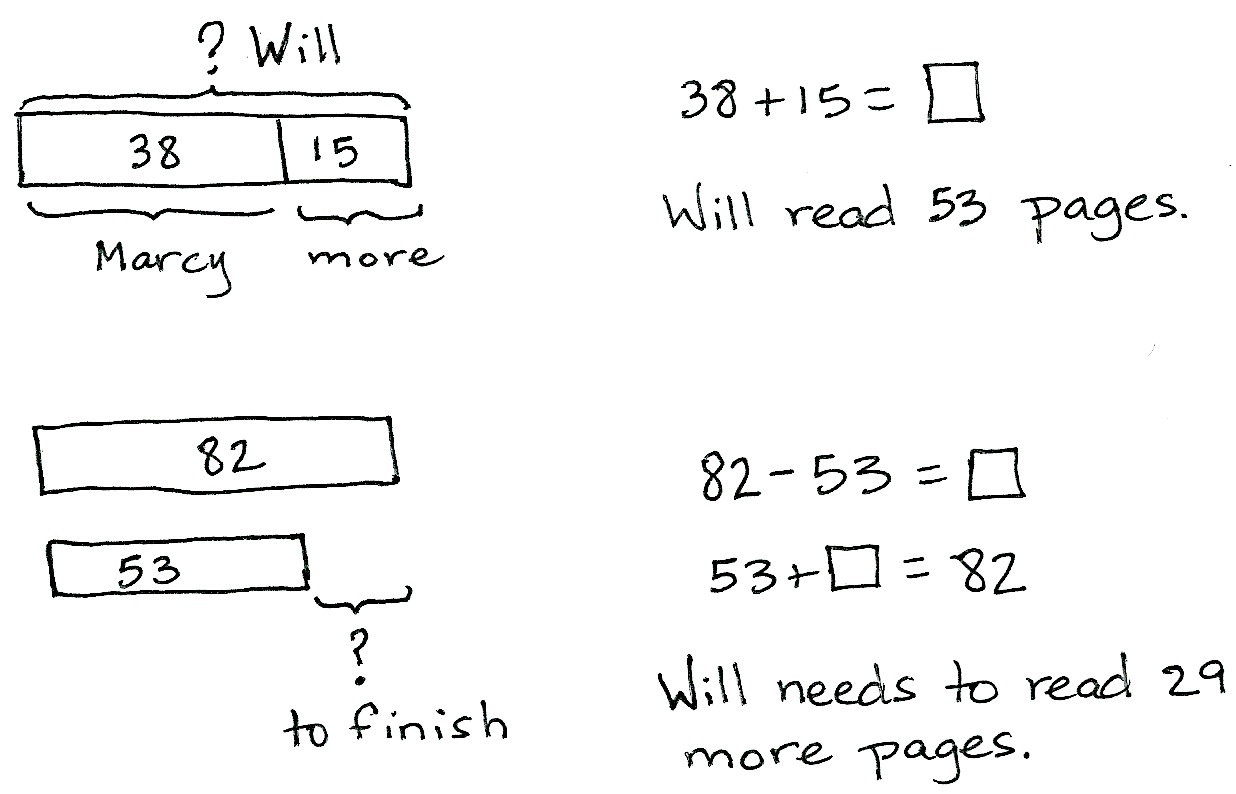 ? Will
38 15
Marcy more
38 + 15 = □
Will read 53 pages.
82
53
?
to finish
82 - 53 = □
53 + □ = 82
Will needs to read 29
more pages.